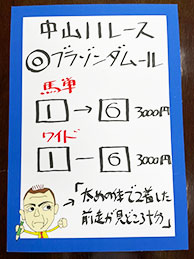 中山11レース
◎ブラゾンダムール
馬単
1→6 3000円
ワイド
1－6 3000円
「太めの体で2着した
前走が見どころ十分」